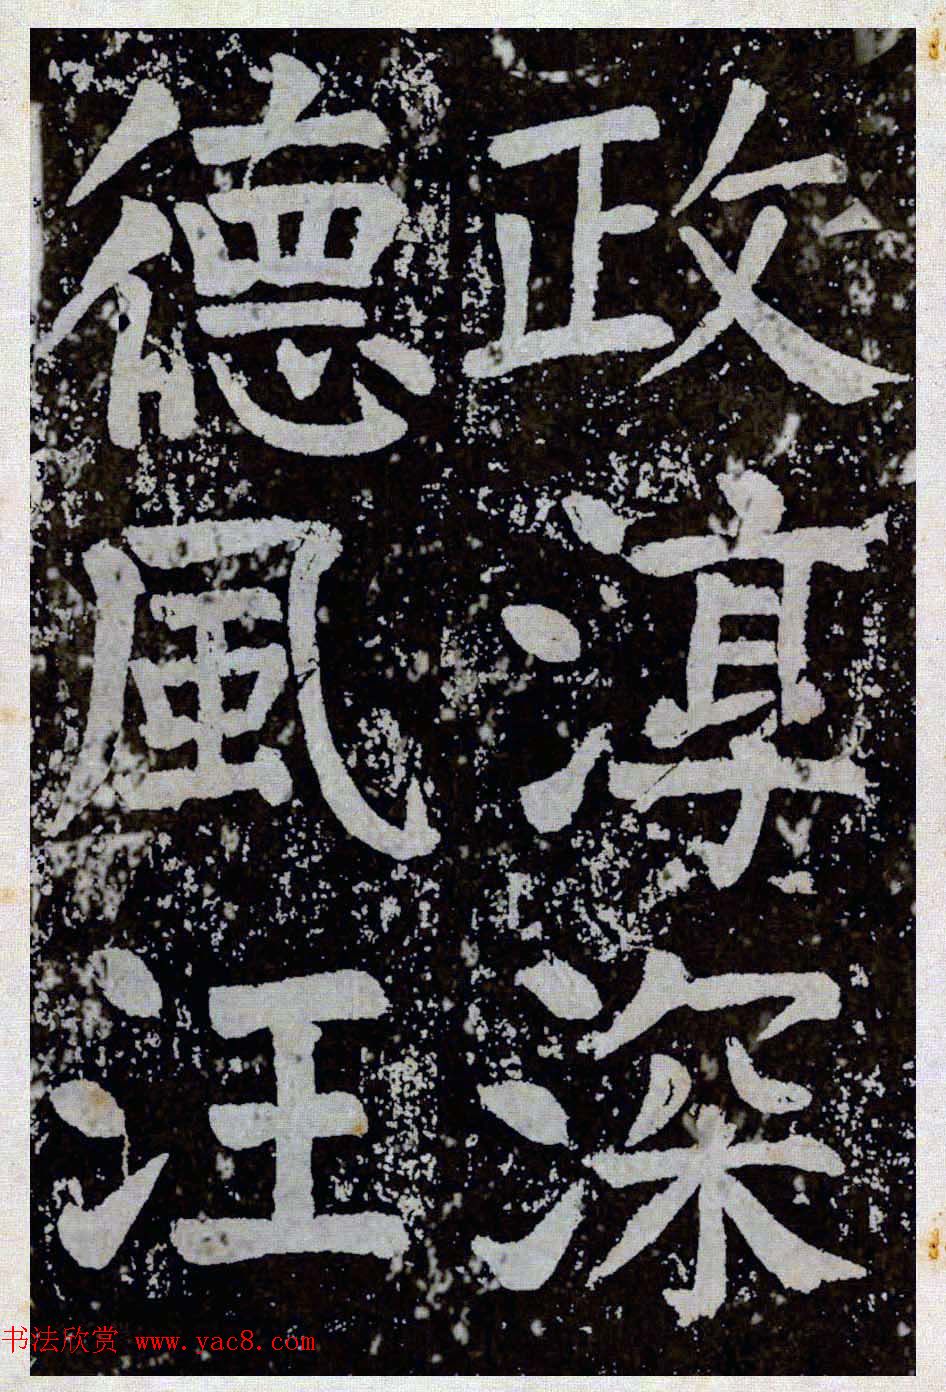 政淳深
德風汪
书法欣赏 www.yac8.com